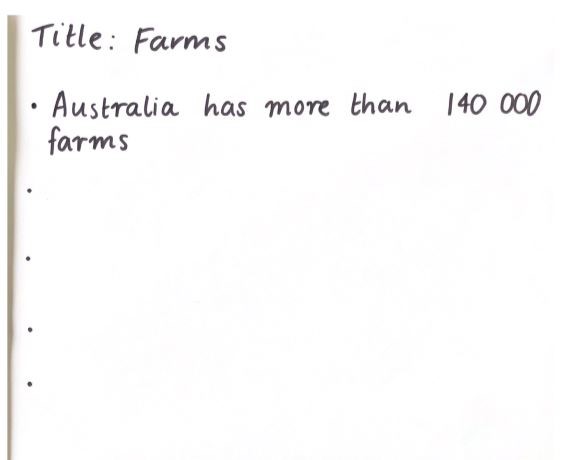 Title: Farms
• Australia has more than 140 000
farms
•
•
•
•